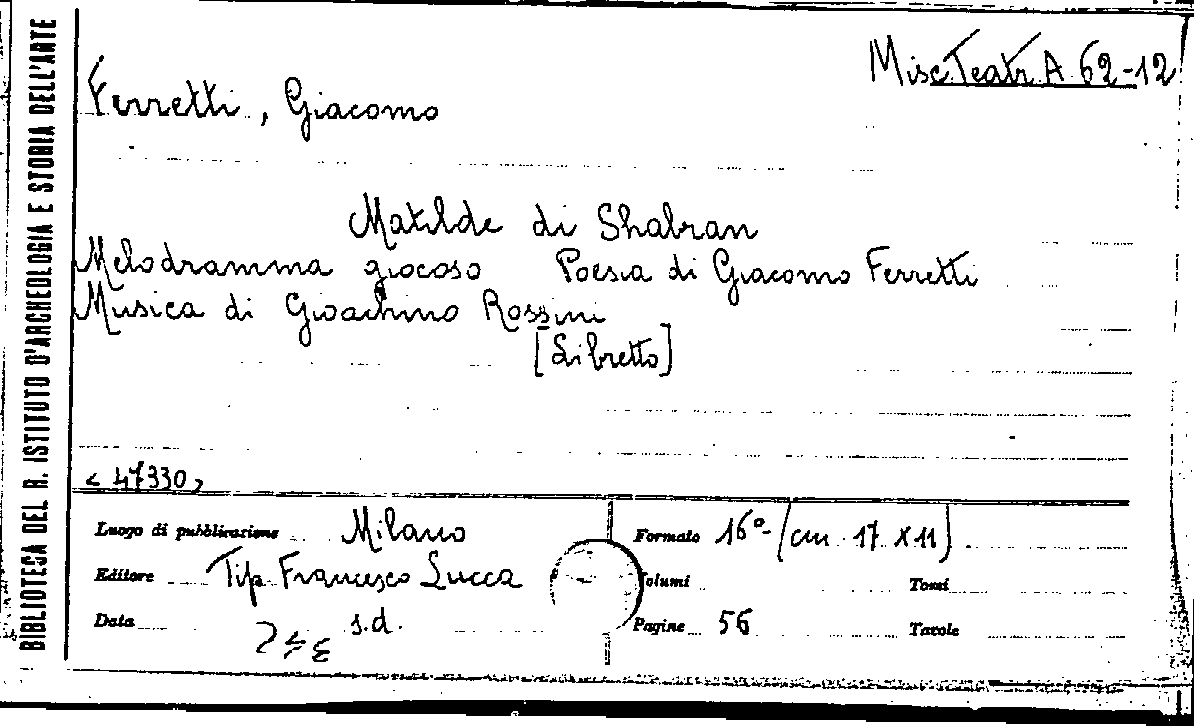 BIBLIOTECA DEL R. ISTITUTO D'ARCHEOLOGIA E STORIA DELL'ARTE
Misc Teatr A 62-12
Ferretti, Giacomo
Matilde di Shabran
Melodramma giocoso Poesia di Giacomo Ferretti
Musica di Gioachino Rossini
[Libretto]
< 47330 >
Luogo di pubblicazione Milano
Editore Tip Francesco Lucca
Data s.d.
Formato 16° (cm 17 X 11)
Volumi Tomi
Pagine 56 Tavole